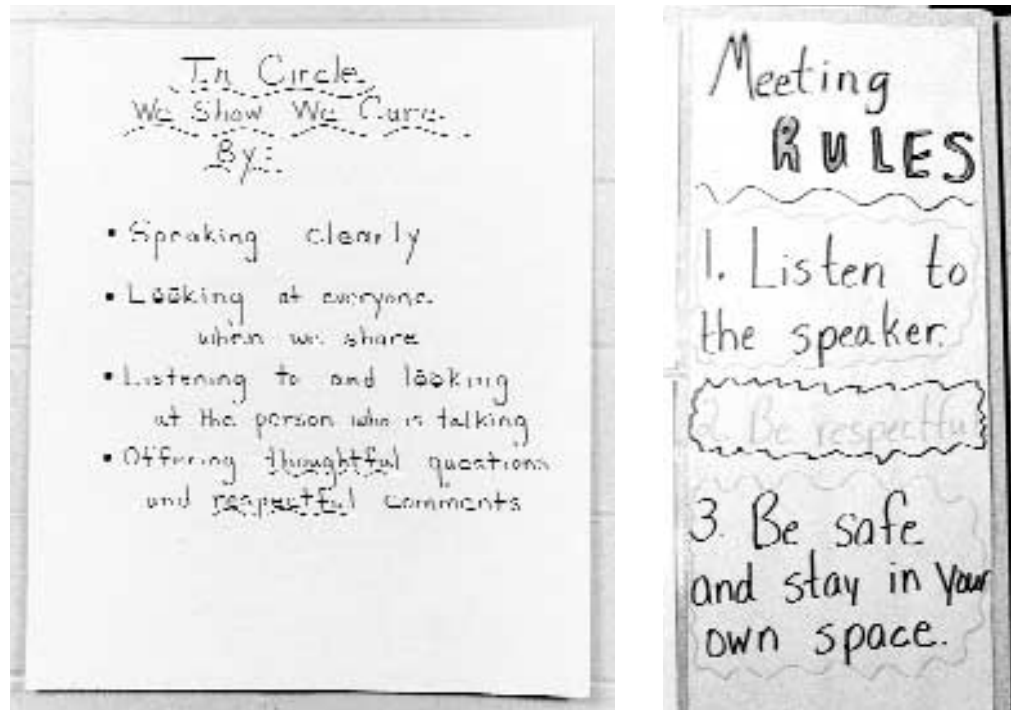 In Circle
We Show We Care
By:
• Speaking clearly
• Looking at everyone
when we share
• Listening to and looking
at the person who is talking
• Offering thoughtful questions
and respectful comments
Meeting
RULES
1. Listen to
the speaker.
2. Be respectful
3. Be safe
and stay in your
own space.